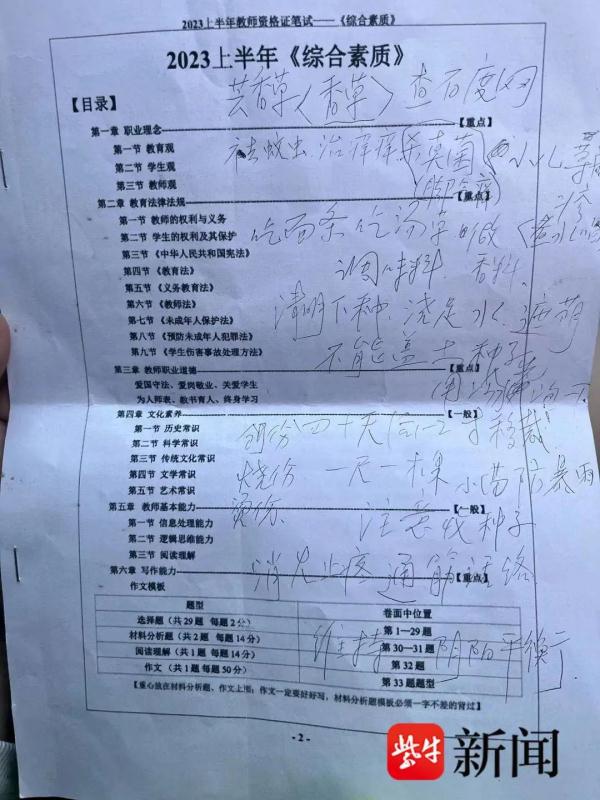 2023上半年教师资格证笔试——《综合素质》
2023上半年《综合素质》
芸香草(香草) 查百度网
【目录】
第一章 职业理念 【重点】
第一节 教育观
祛蛇虫 治痒 杀真菌 小儿
第二节 学生观
第三节 教师观
(脚气病)
第二章 教育法律法规 【重点】
第一节 教师的权利与义务
第二节 学生的权利及其保护
吃面条 吃汤
第三节 《中华人民共和国宪法》
第四节 《教育法》
调味料 香料
第五节 《义务教育法》
第六节 《教师法》
清明下种 浇足水 遮荫
第七节 《未成年人保护法》
第八节 《预防未成年人犯罪法》
第九节 《学生伤害事故处理方法》
不能盖土 种子
第三章 教师职业道德 【重点】
爱国守法、爱岗敬业、关爱学生
为人师表、教书育人、终身学习
第四章 文化素养 【一般】
第一节 历史常识
四十天后 移栽
第二节 科学常识
第三节 传统文化常识
第四节 文学常识
烧伤 一尺一棵 小苗防暴雨
第五节 艺术常识
第五章 教师基本能力 【一般】
烫伤 注意收种子
第一节 信息处理能力
第二节 逻辑思维能力
第三节 阅读理解
第六章 写作能力 【重点】
消炎止疼 通筋活络
作文模板
题型 卷面中位置
选择题（共29题 每题2分） 第1—29题
材料分析题（共2题 每题14分） 第30—31题
维持 阴阳平衡
阅读理解（共1题 每题14分） 第32题
作文（共1题 每题50分） 第33题题型
【重心放在材料分析题、作文上面；作文一定要好好写，材料分析题模板必须一字不差的背过】
- 2 -
紫牛新闻